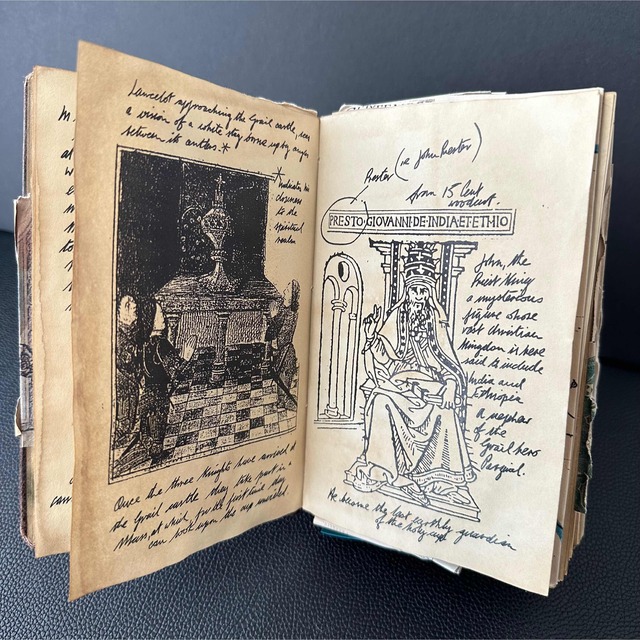 Lancelot approaching the Grail castle, sees
a vision of a white stag borne up by angels
between its antlers.*
* Indicates his
closeness
to the
spiritual
realm
Once the three Knights have arrived at
the Grail castle they take part in a
Mass, at which for the first time they
can look upon the cup unveiled.
Prester (ie John Prester)
from 15 Cent
woodcut.
PRESTO GIOVANNI·DE·INDIA·ET·ETHIO
John, the
Priest King
a mysterious
figure whose
vast christian
Kingdom is here
said to include
India and
Ethiopia
a nephew
of the
Grail hero
Parzival.
He became the last earthly guardian
of the holy cup